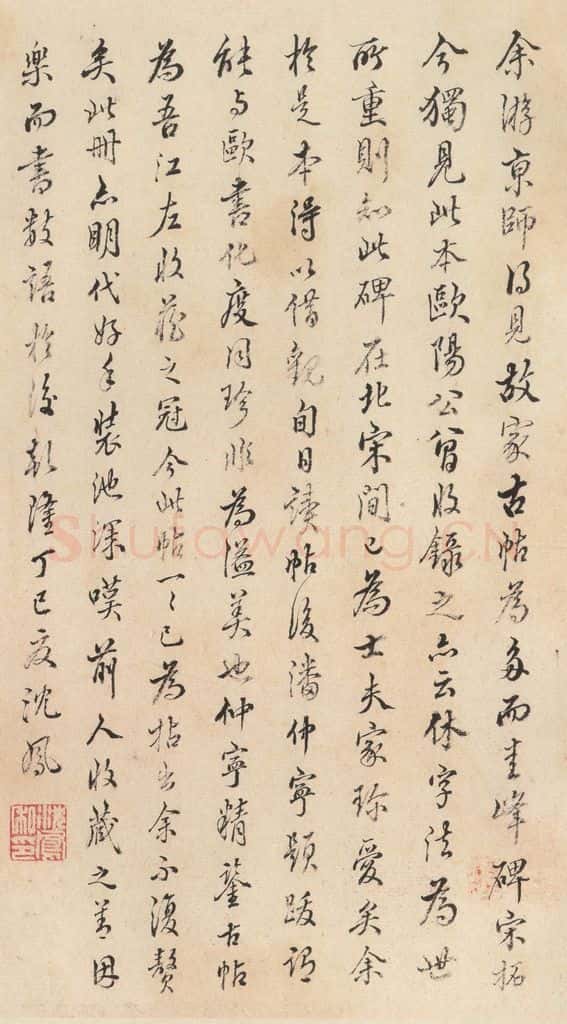 余游京師得見故家古帖為多而圭峰碑宋拓
今獨見此本歐陽公曾收錄之亦云休字法為世
所重則知此碑在北宋間已為士夫家珍愛矣余
於是本得以借觀旬日讀帖後潘仲寧題跋謂
能與歐書化度同珍非為溢美也仲寧精鑒古帖
為吾江左收藏之冠今此帖一一已為拈出余不復贅
矣此冊亦明代好手裝池深嘆前人收藏之善因
樂而書數語於後乾隆丁巳夏沈鳳
Shufawang.CN